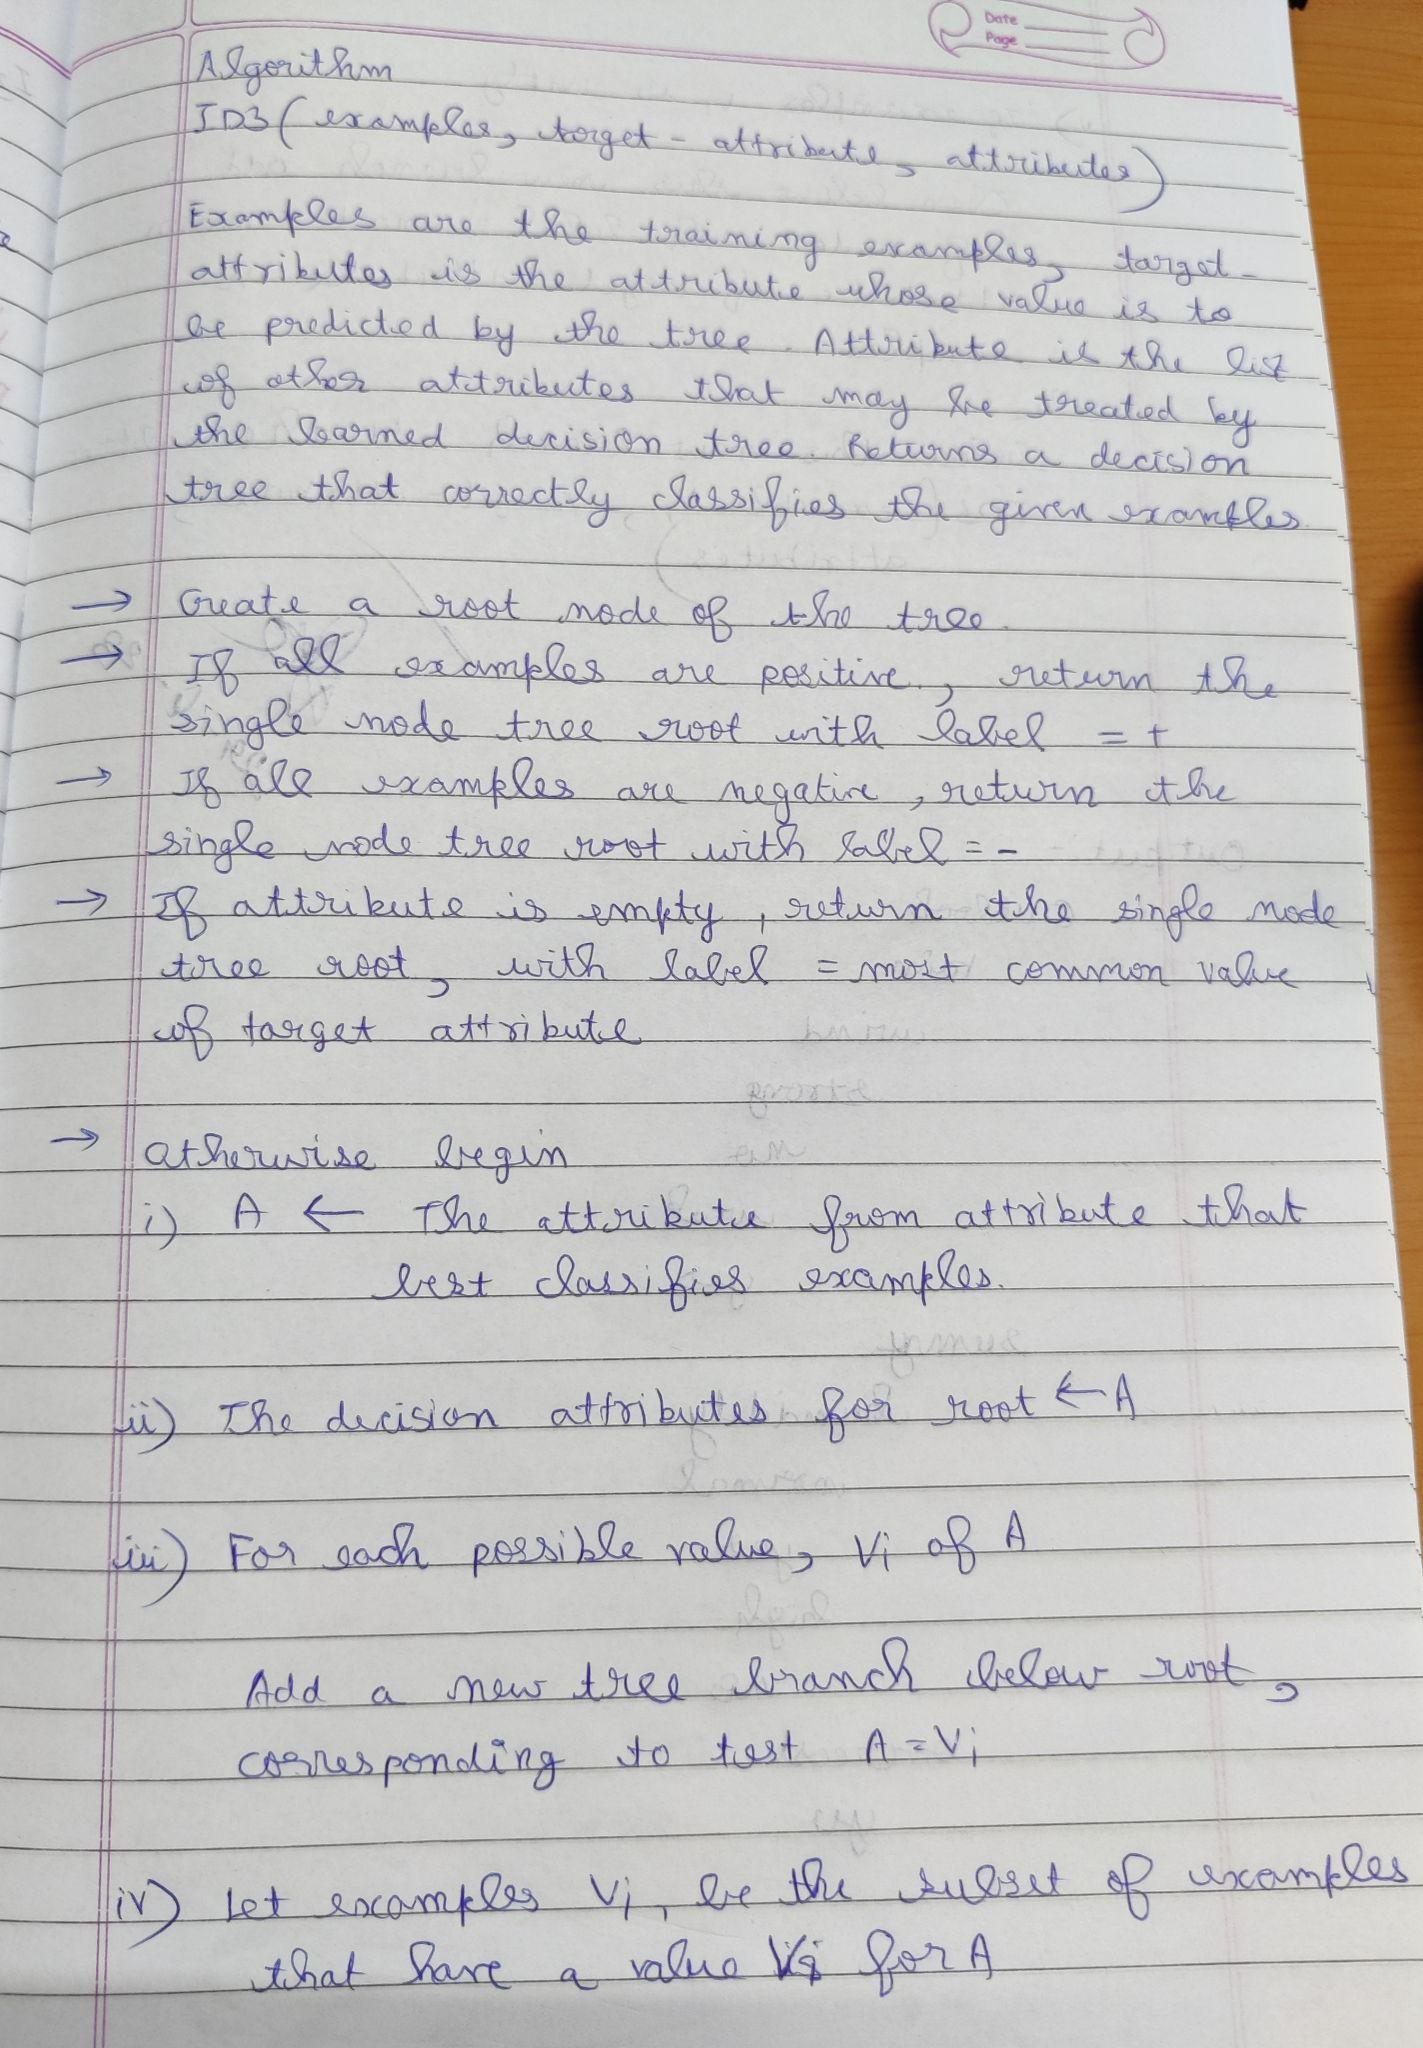 Date
Page
Algorithm
ID3 ( examples, target - attribute, attributes )
Examples are the training examples, target -
attributes is the attribute whose value is to
be predicted by the tree. Attribute is the list
of other attributes that may be treated by
the learned decision tree. Returns a decision
tree that correctly classifies the given examples
→ Create a root node of the tree.
→ If all examples are positive, return the
single node tree root with label = +
→ If all examples are negative, return the
single node tree root with label = -
→ If attribute is empty, return the single node
tree root, with label = most common value
of target attribute
→ Otherwise begin
i) A ← The attribute from attribute that
best classifies examples.
ii) The decision attributes for root ← A
iii) For each possible value, Vi of A
Add a new tree branch below root,
corresponding to test A = Vi
iv) Let examples Vi, be the subset of examples
that have a value Vi for A